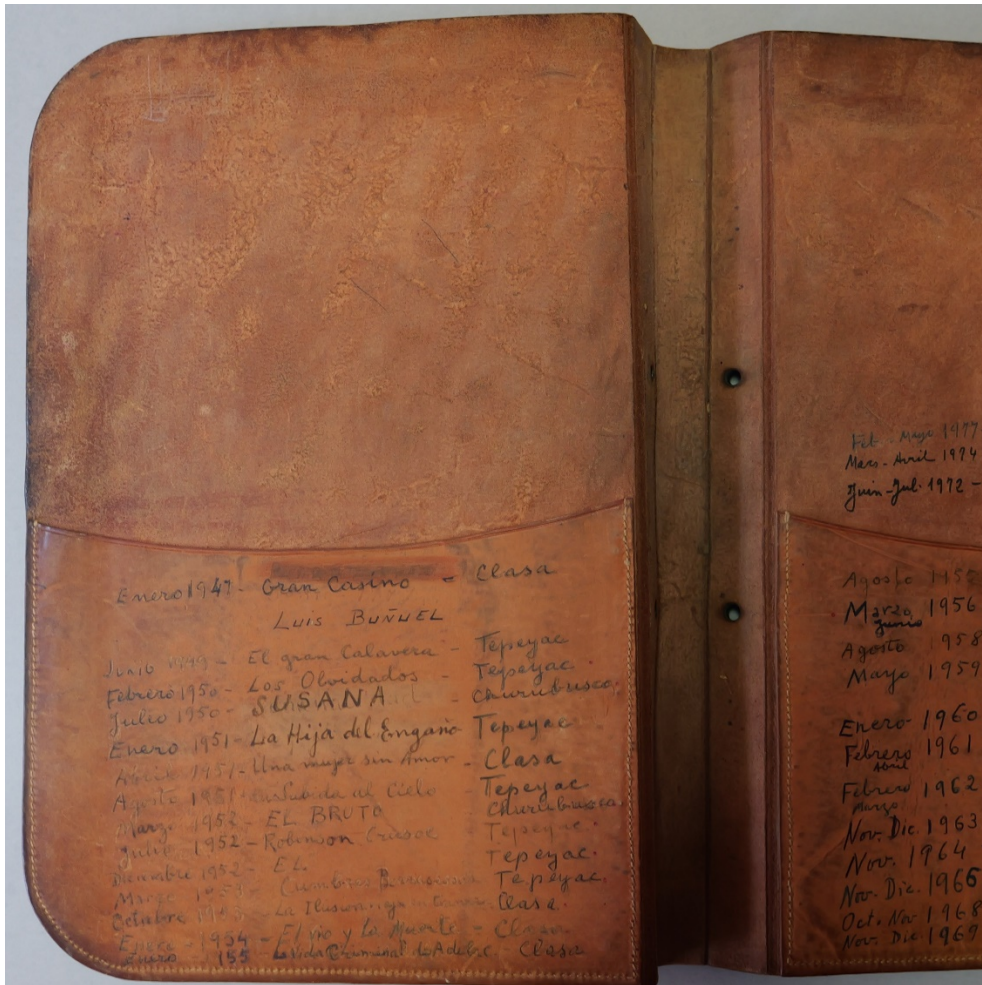 Enero 1947 - Gran Casino - Clasa
LUIS BUÑUEL
Junio 1949 - El gran Calavera - Tepeyac
Febrero 1950 - Los Olvidados - Tepeyac
Julio 1950 - SUSANA - Churubusco
Enero 1951 - La Hija del Engaño - Tepeyac
Abril 1951 - Una mujer sin Amor - Clasa
Agosto 1951 - Subida al Cielo - Tepeyac
Marzo 1952 - EL BRUTO - Churubusco
Julio 1952 - Robinson Crusoe - Tepeyac.
Diciembre 1952 - EL - Tepeyac.
Marzo - Cumbres - Tepeyac.
Octubre - La Ilusion viaja en tranvia - Clasa.
Enero - 1954 - El rio y la Muerte - Clasa
Enero 155 - La vida Criminal de Clasa
Feb - Mayo 1977
Mars - Avril 1974
Juin - Jul. 1972 -
Agosto 1155
Marzo 1956
Junio
Agosto 1958
Mayo 1959
Enero - 1960
Febrero 1961
Abril
Febrero 1962
Marzo
Nov. Dic. 1963
Nov. 1964
Nov. Dic. 1966
Oct. Nov 1968
Nov. Dic 1969